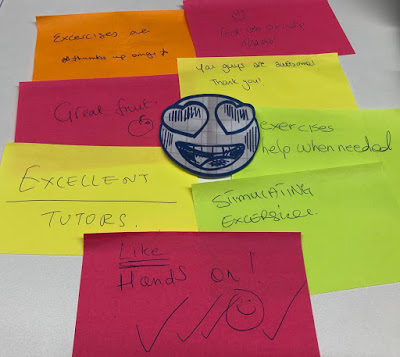 Excercises are
thumbs up
You guys are awesome!
Thank you!
Great fruit.
exercises
help when needed
EXCELLENT
TUTORS.
STIMULATING
EXCERSISE.
Like
Hands on!